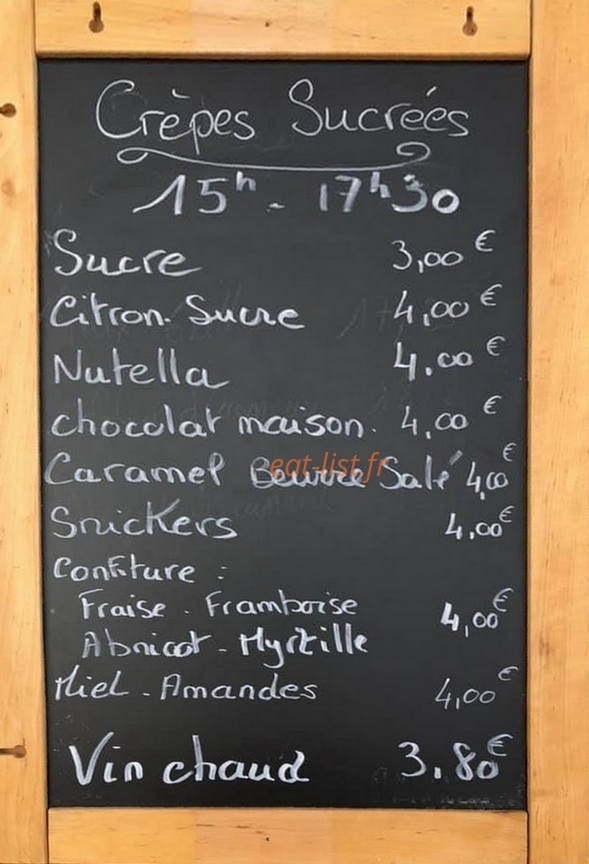 Crèpes Sucrées
15h - 17h30
Sucre 3,00 €
Citron. Sucre 4,00 €
Nutella 4,00 €
chocolat maison. 4,00 €
Caramel Beurre Salé 4,00 €
eat-list.fr
Snickers 4,00 €
Confiture :
Fraise - Framboise
4,00 €
Abricot - Myrtille
Miel - Amandes 4,00 €
Vin chaud 3.80 €